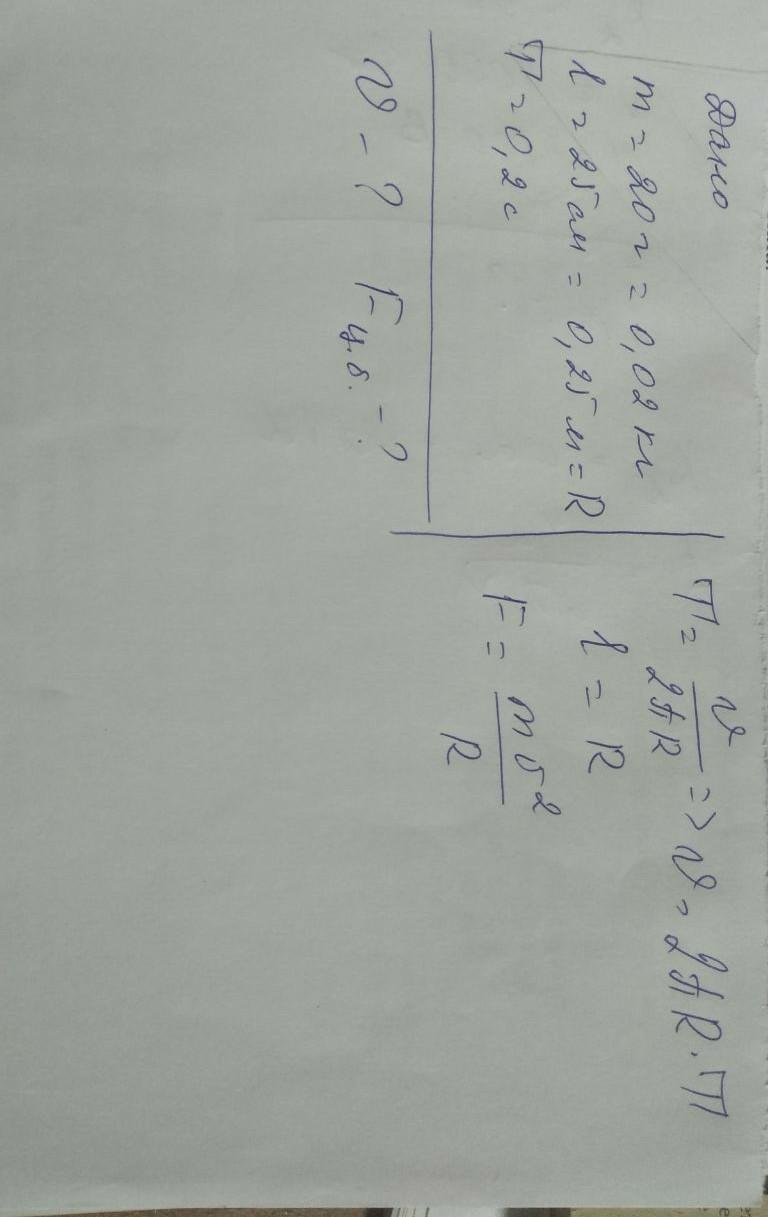 Дано
m = 20 г = 0,02 кг
l = 25 см = 0,25 м = R
T = 0,2 с
v - ? Fц.б. - ?
T = v / 2πR => v = 2πR · T
l = R
F = mv² / R